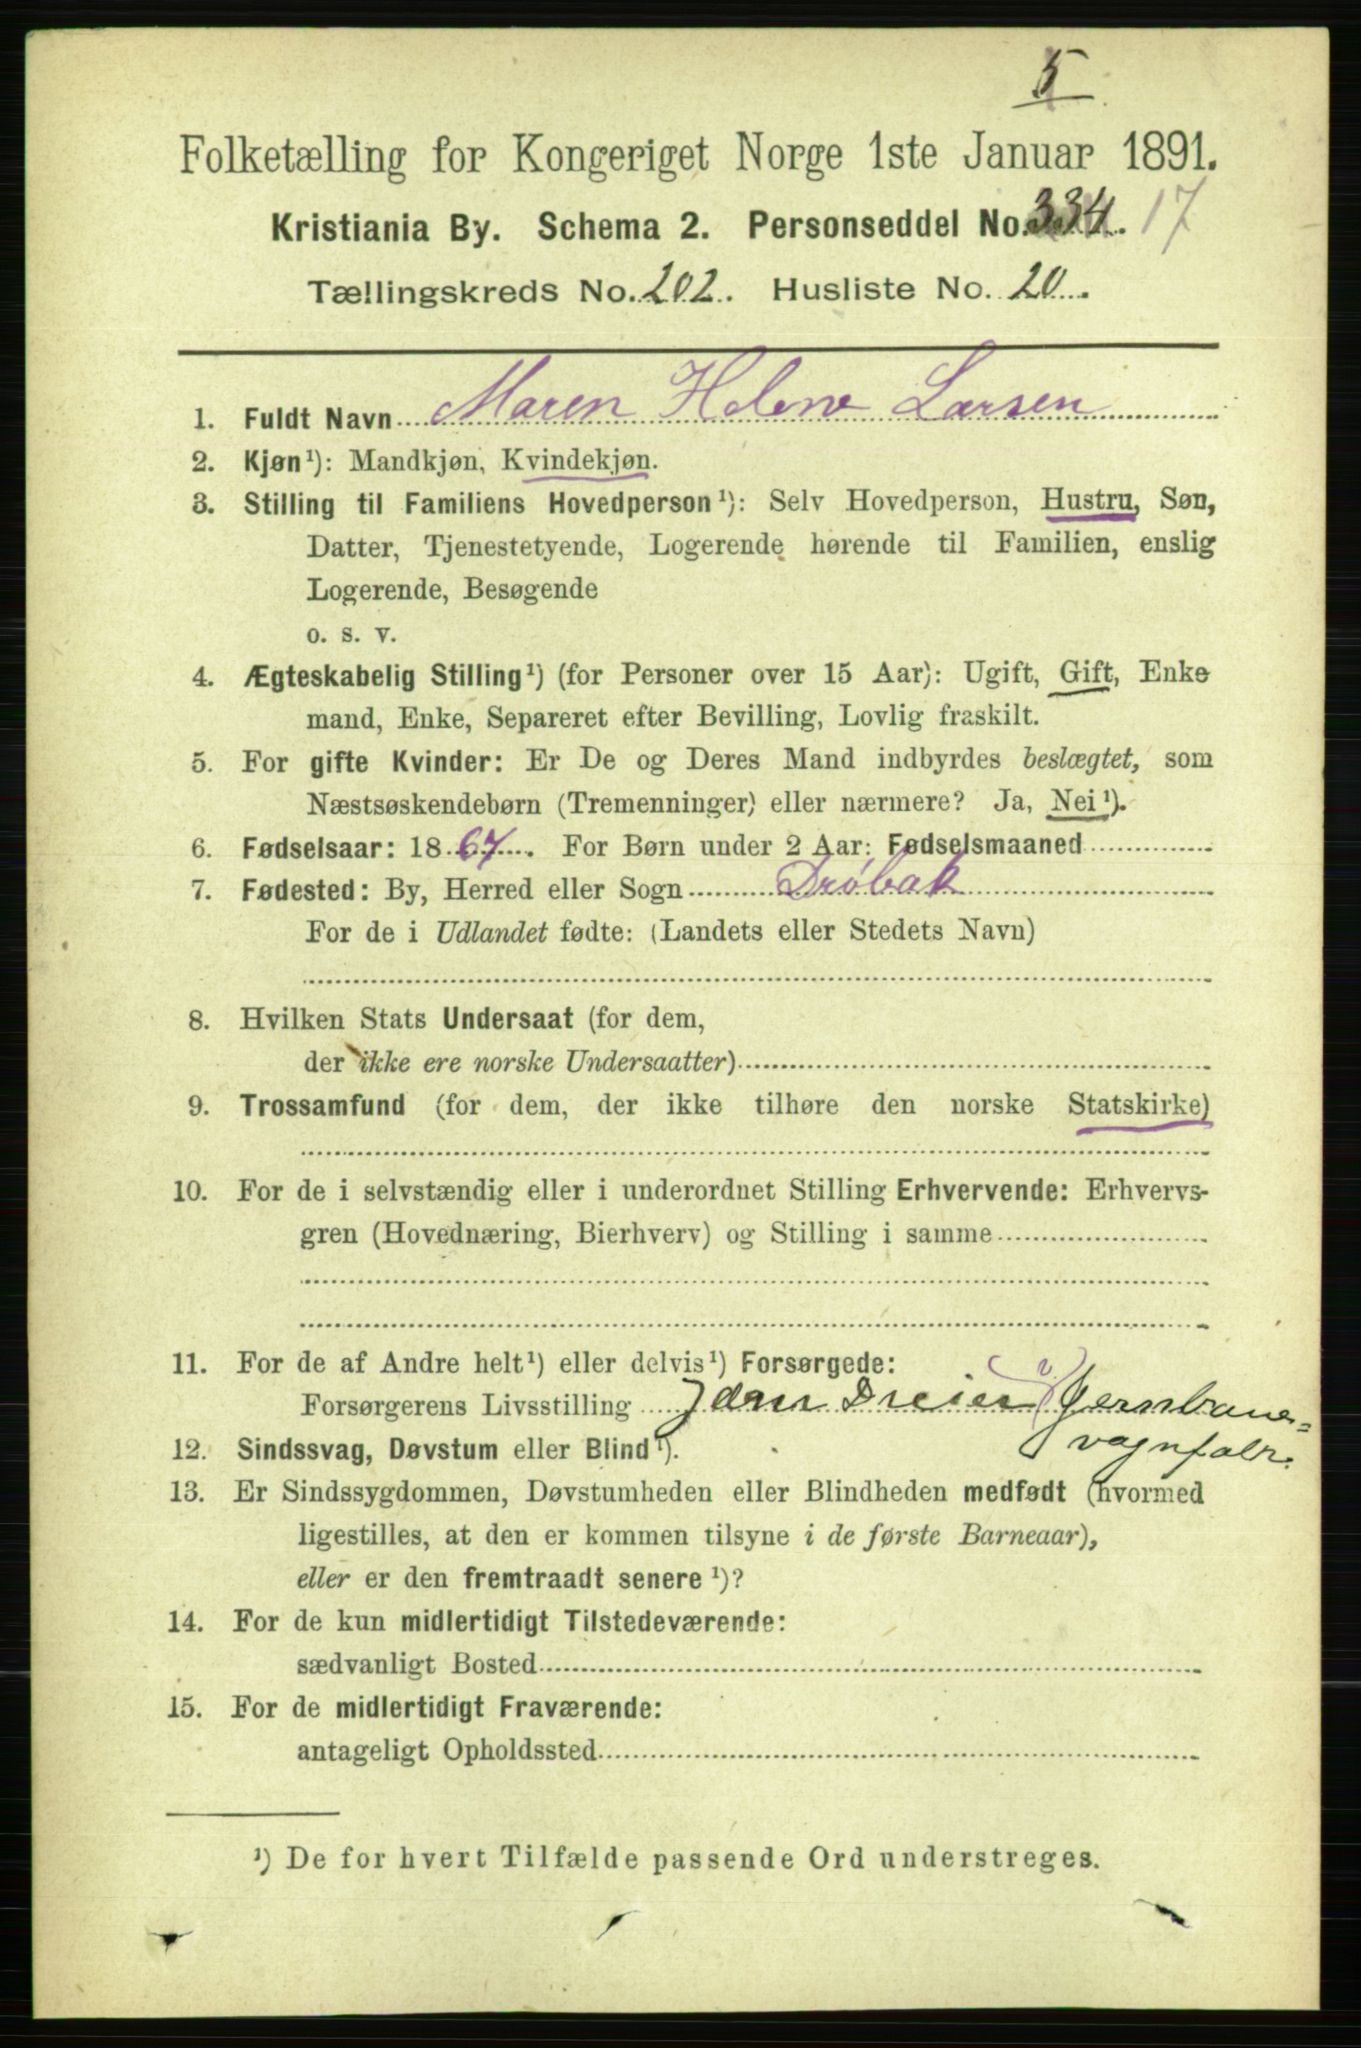 5
Folketælling for Kongeriget Norge 1ste Januar 1891.
Kristiania By. Schema 2. Personseddel No. 334. 17
Tællingskreds No. 202. Husliste No. 20.
1. Fuldt Navn Maren Helene Larsen
2. Kjøn¹): Mandkjøn, Kvindekjøn.
3. Stilling til Familiens Hovedperson¹): Selv Hovedperson, Hustru, Søn,
Datter, Tjenestetyende, Logerende hørende til Familien, enslig
Logerende, Besøgende
o. s. v.
4. Ægteskabelig Stilling¹) (for Personer over 15 Aar): Ugift, Gift, Enke
mand, Enke, Separeret efter Bevilling, Lovlig fraskilt.
5. For gifte Kvinder: Er De og Deres Mand indbyrdes beslægtet, som
Næstsøskendebørn (Tremenninger) eller nærmere? Ja, Nei¹).
6. Fødselsaar: 1867. For Børn under 2 Aar: Fødselsmaaned
7. Fødested: By, Herred eller Sogn Drøbak
For de i Udlandet fødte: (Landets eller Stedets Navn)
8. Hvilken Stats Undersaat (for dem,
der ikke ere norske Undersaatter)
9. Trossamfund (for dem, der ikke tilhøre den norske Statskirke)
10. For de i selvstændig eller i underordnet Stilling Erhvervende: Erhvervs-
gren (Hovednæring, Bierhverv) og Stilling i samme
11. For de af Andre helt¹) eller delvis¹) Forsørgede:
Forsørgerens Livsstilling Jern Dreier Jernbane=
vognfabr.
12. Sindssvag, Døvstum eller Blind¹).
13. Er Sindssygdommen, Døvstumheden eller Blindheden medfødt (hvormed
ligestilles, at den er kommen tilsyne i de første Barneaar),
eller er den fremtraadt senere¹)?
14. For de kun midlertidigt Tilstedeværende:
sædvanligt Bosted
15. For de midlertidigt Fraværende:
antageligt Opholdssted
¹) De for hvert Tilfælde passende Ord understreges.